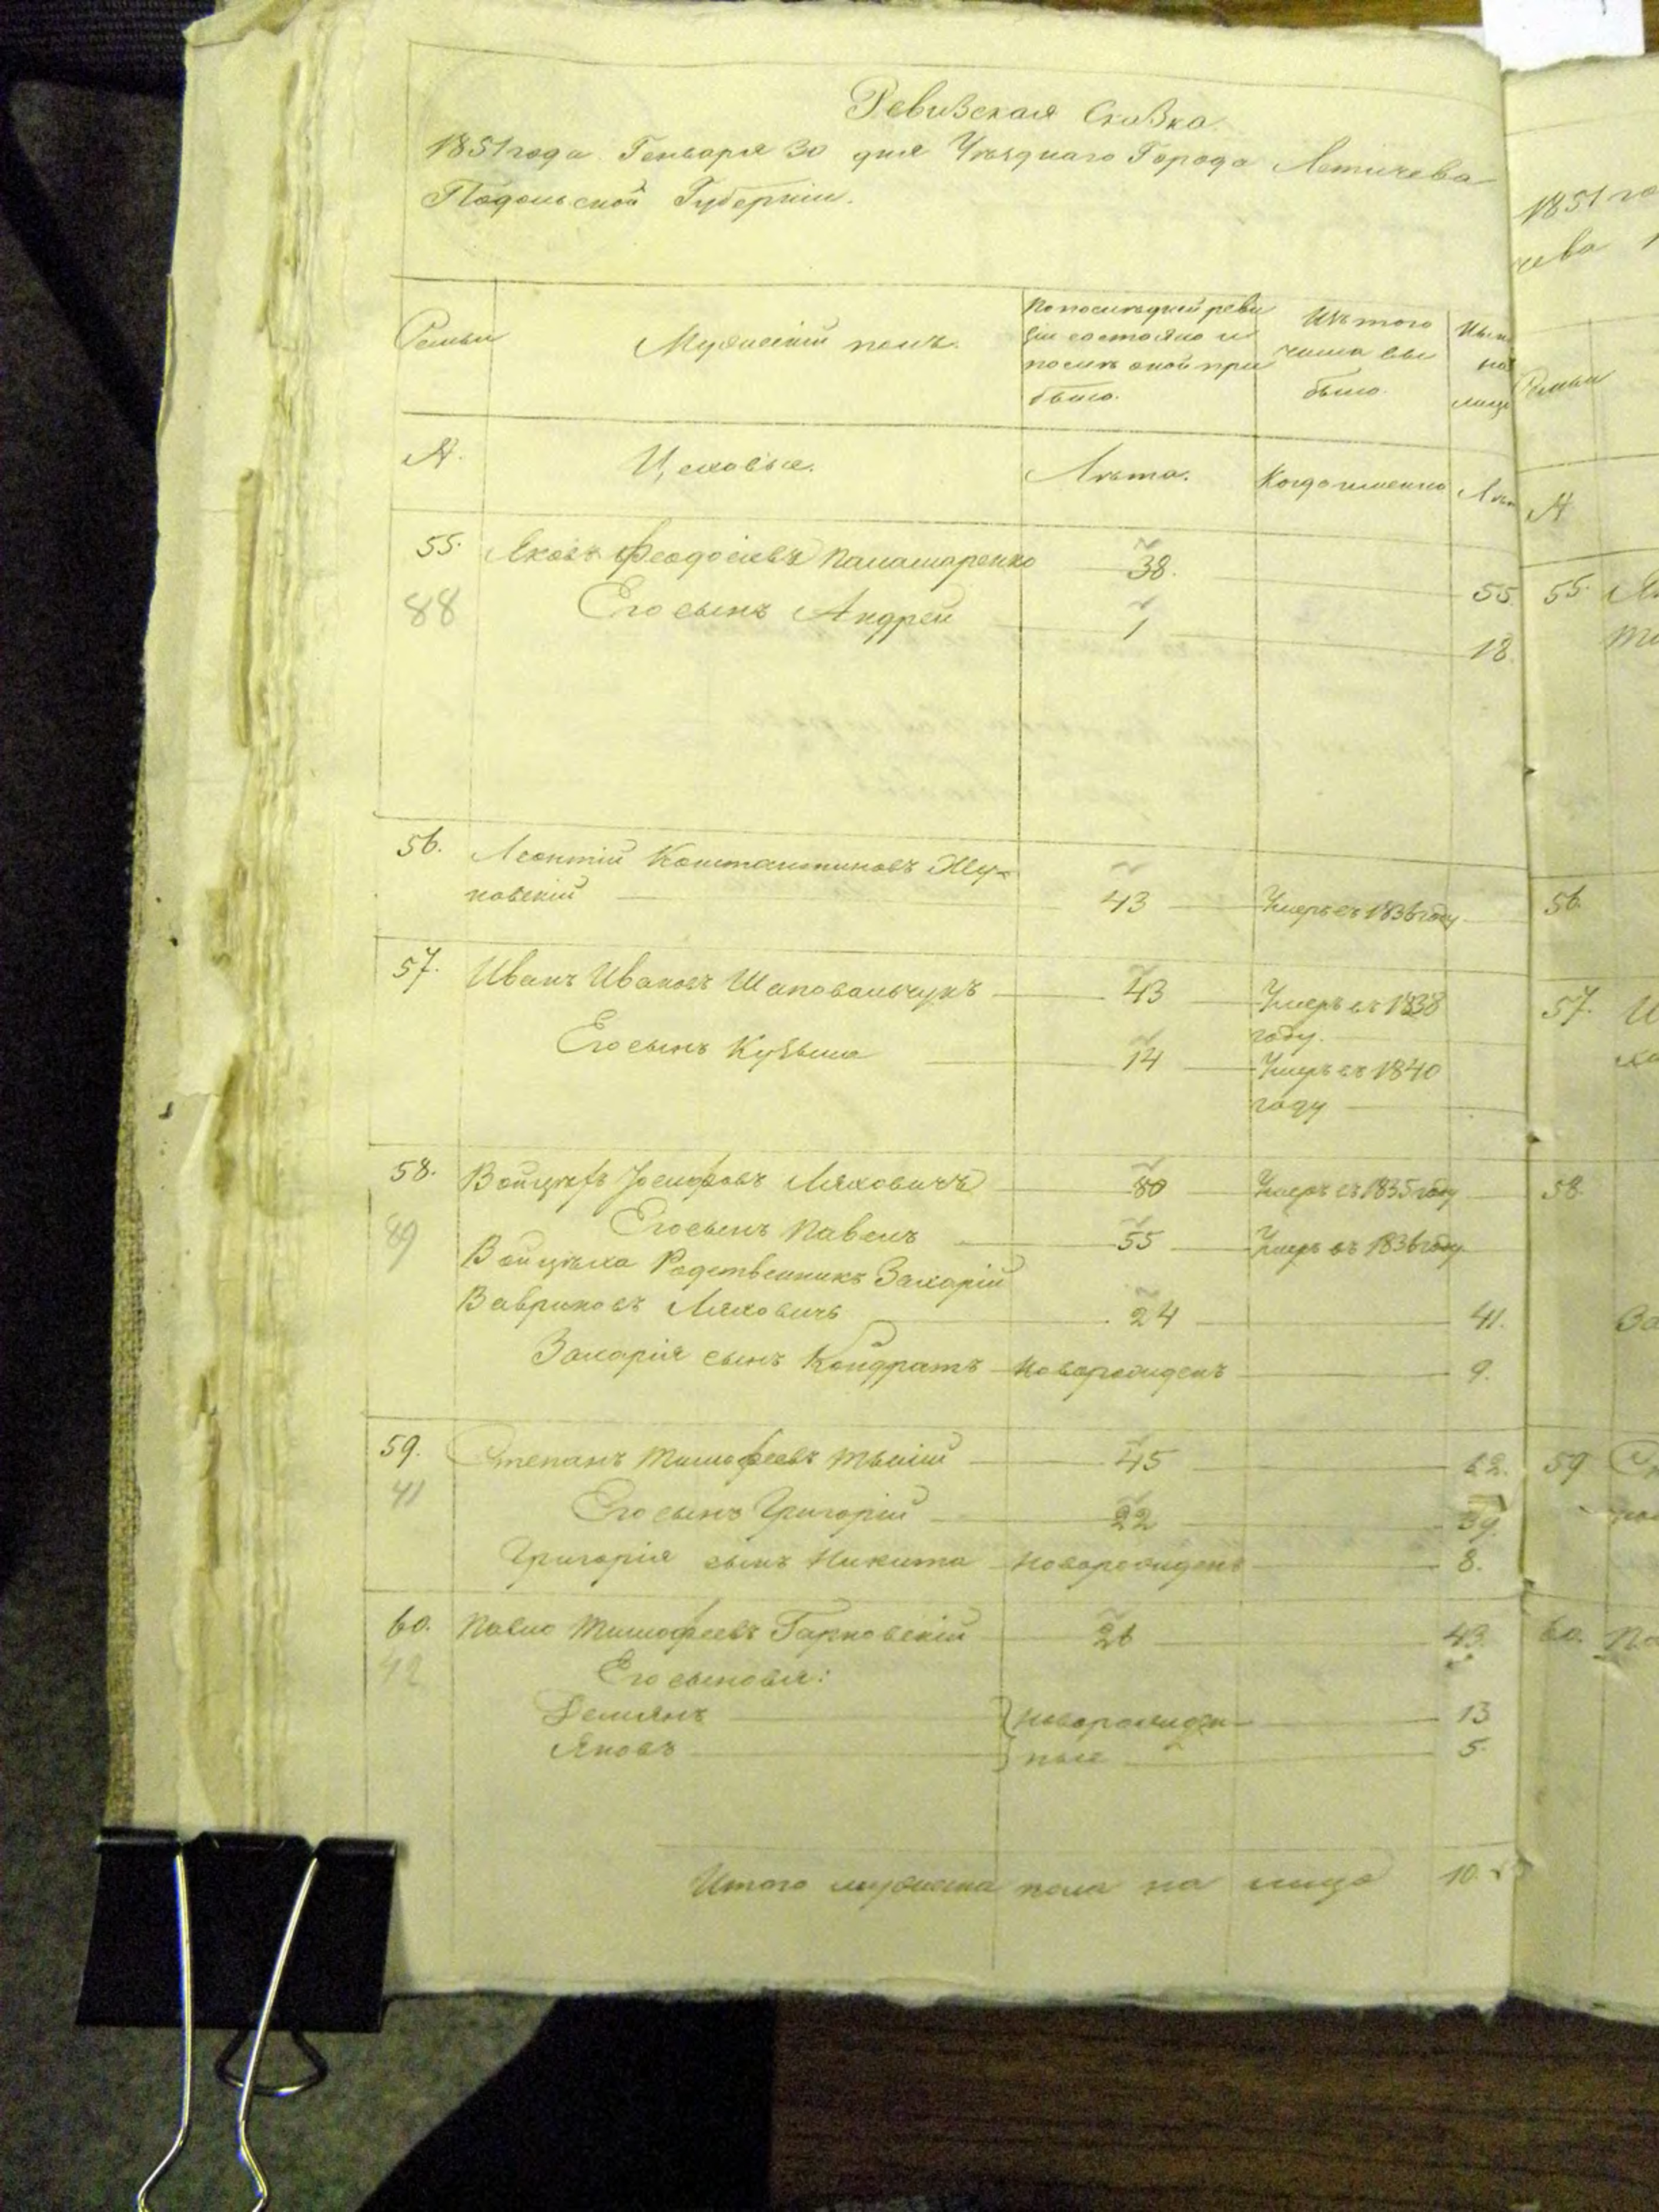 Ревизская Сказка
1851 года Генваря 30 дня Уѣзднаго Города Летичева
Подольской Губерніи.
Семьи
Мужескій полъ.
По послѣдней реви
зіи состояло и
послѣ оной при
было.
Изъ того
числа вы
было.
Нынѣ
на
лицо
№.
Цеховые.
Лѣта.
Когда именно
Лѣт
55. Яковъ Феодосіевъ Паламаренко 38. 55.
88 Его сынъ Андрей 1 18.
56. Леонтій Константиновъ
новскій 43 Умеръ въ 1836 году
57. Иванъ Ивановъ Шаповальчукъ 43 Умеръ въ 1838
году.
Его сынъ Кузьма 14 Умеръ въ 1840
году
58. Войцѣхъ Іосифовъ Ляховичъ 80 Умеръ въ 1835 году
89 Его сынъ Павелъ 55 Умеръ въ 1836 году
Войцѣха Родственникъ Захарій
Вавриковъ Ляховичъ 24 41.
Захарія сынъ Кондратъ Новорожденъ 9.
59. Степанъ Тимофеевъ 45 62.
41 Его сынъ Григорій 22 39.
Григорія сынъ Никита Новорожденъ 8.
60. Павло Тимофеевъ Гарновскій 26 43.
42 Его сыновья:
Демянъ } новорожден 13
Яковъ } ные 5.
Итого мужеска пола на лицо 10.
1851 го
чева
Семьи
№
55.
56.
57. И
58.
За
59 Ст
60. Па